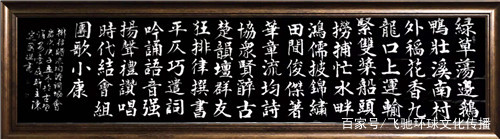 綠草蕩邊鵝
鴨壯溪南村
外稻花香九
龍口上運輸
緊雙槳船頭
撈捕忙水畔
鴻儒披錦繡
田俊傑著
華章流均詩
協眾賢辭古
楚韻壇群友
狂排律撰書
平仄巧造詞
吟誦語音强
揚聲禮讚唱
時代結會組
團歌小康
百家号/飞驰环球文化传播